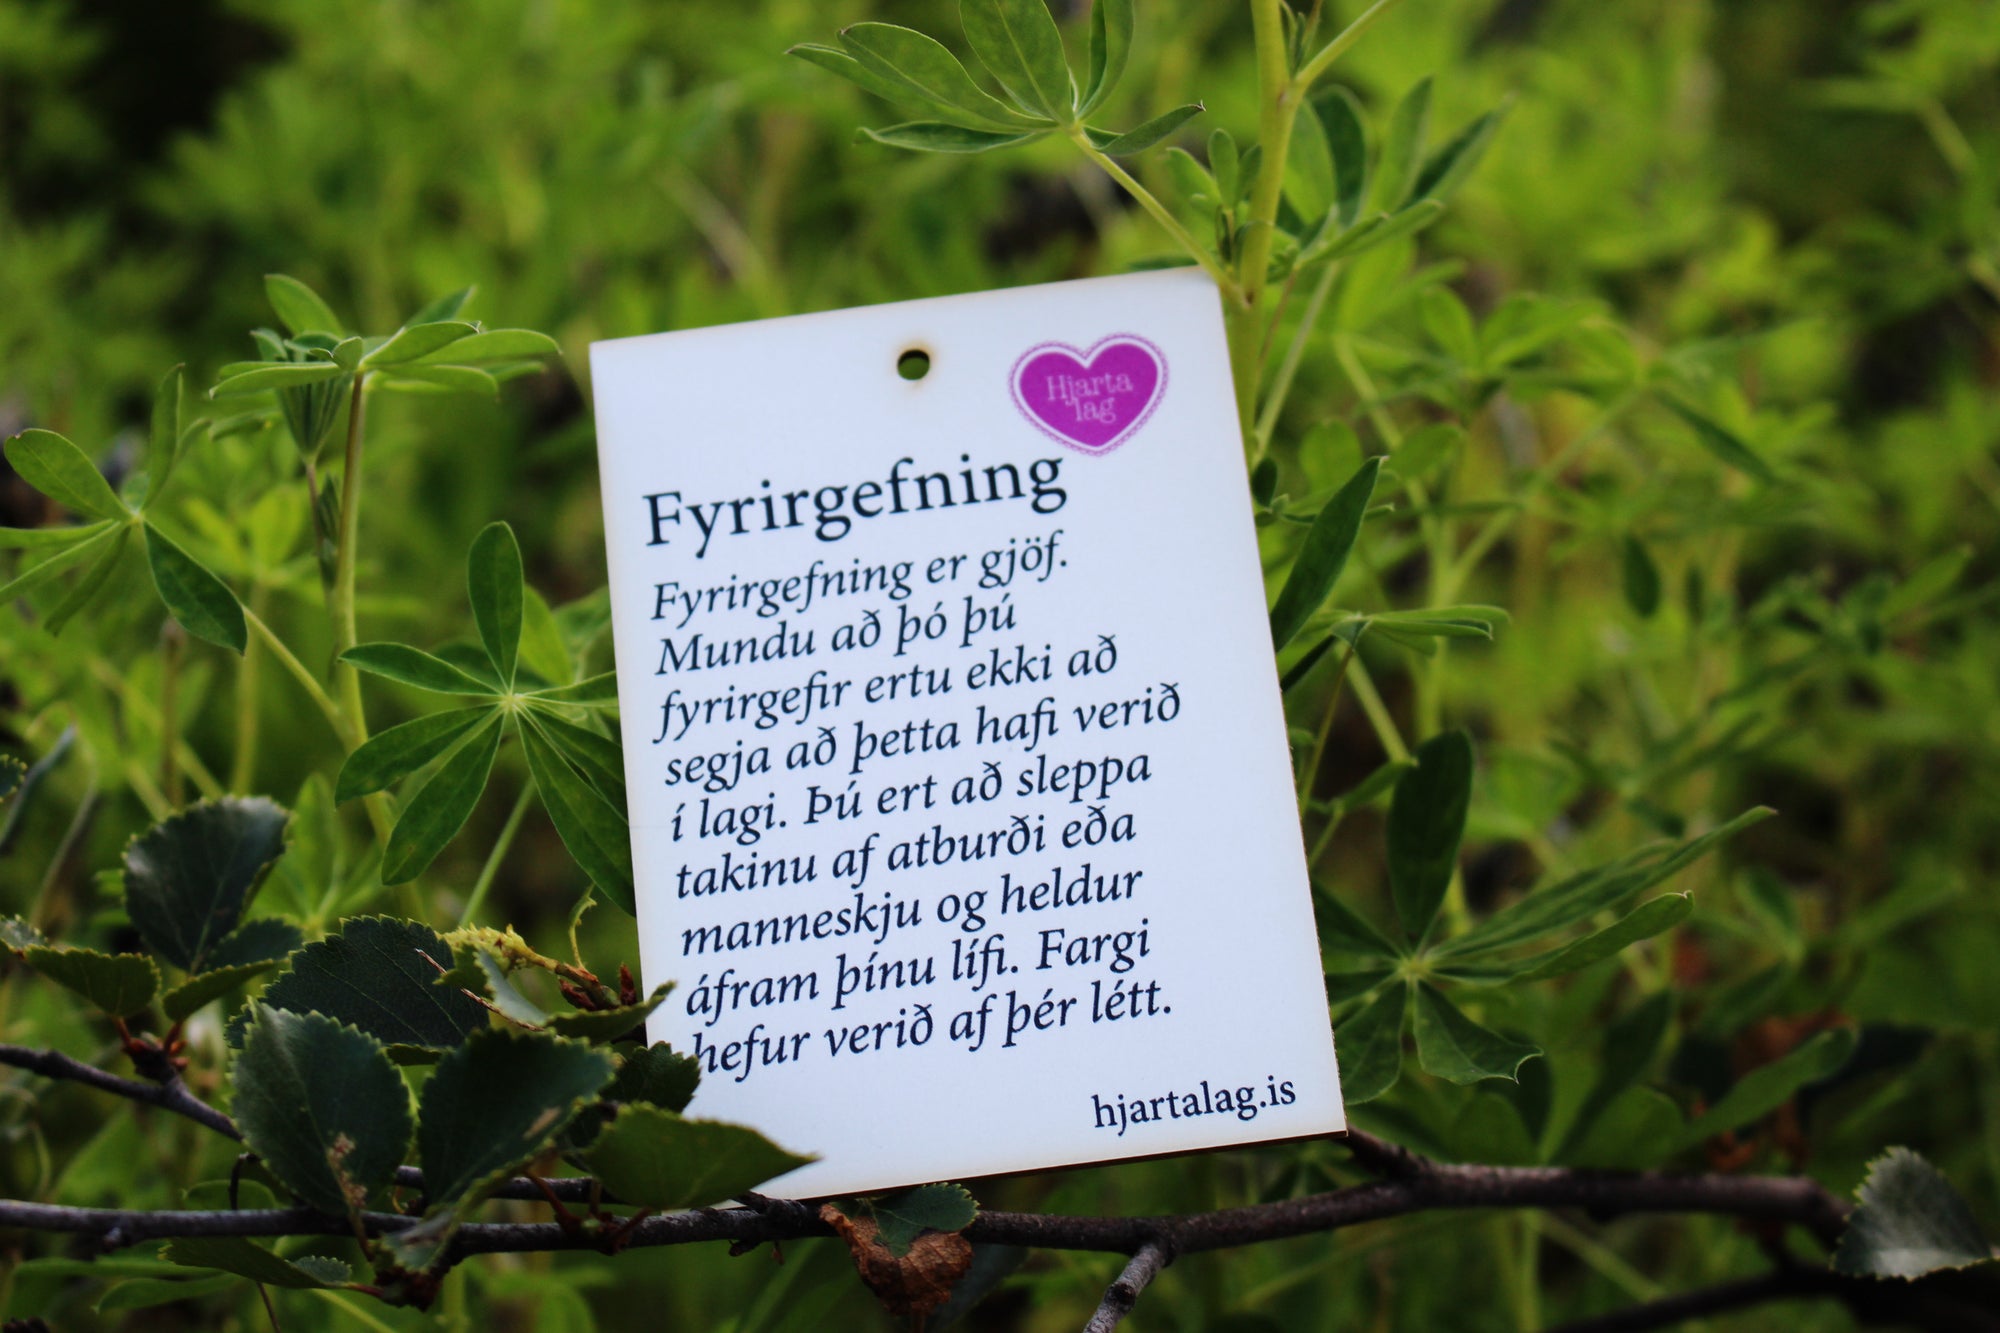 Hjarta
lag
Fyrirgefning
Fyrirgefning er gjöf.
Mundu að þó þú
fyrirgefir ertu ekki að
segja að þetta hafi verið
í lagi. Þú ert að sleppa
takinu af atburði eða
manneskju og heldur
áfram þínu lífi. Fargi
hefur verið af þér létt.
hjartalag.is